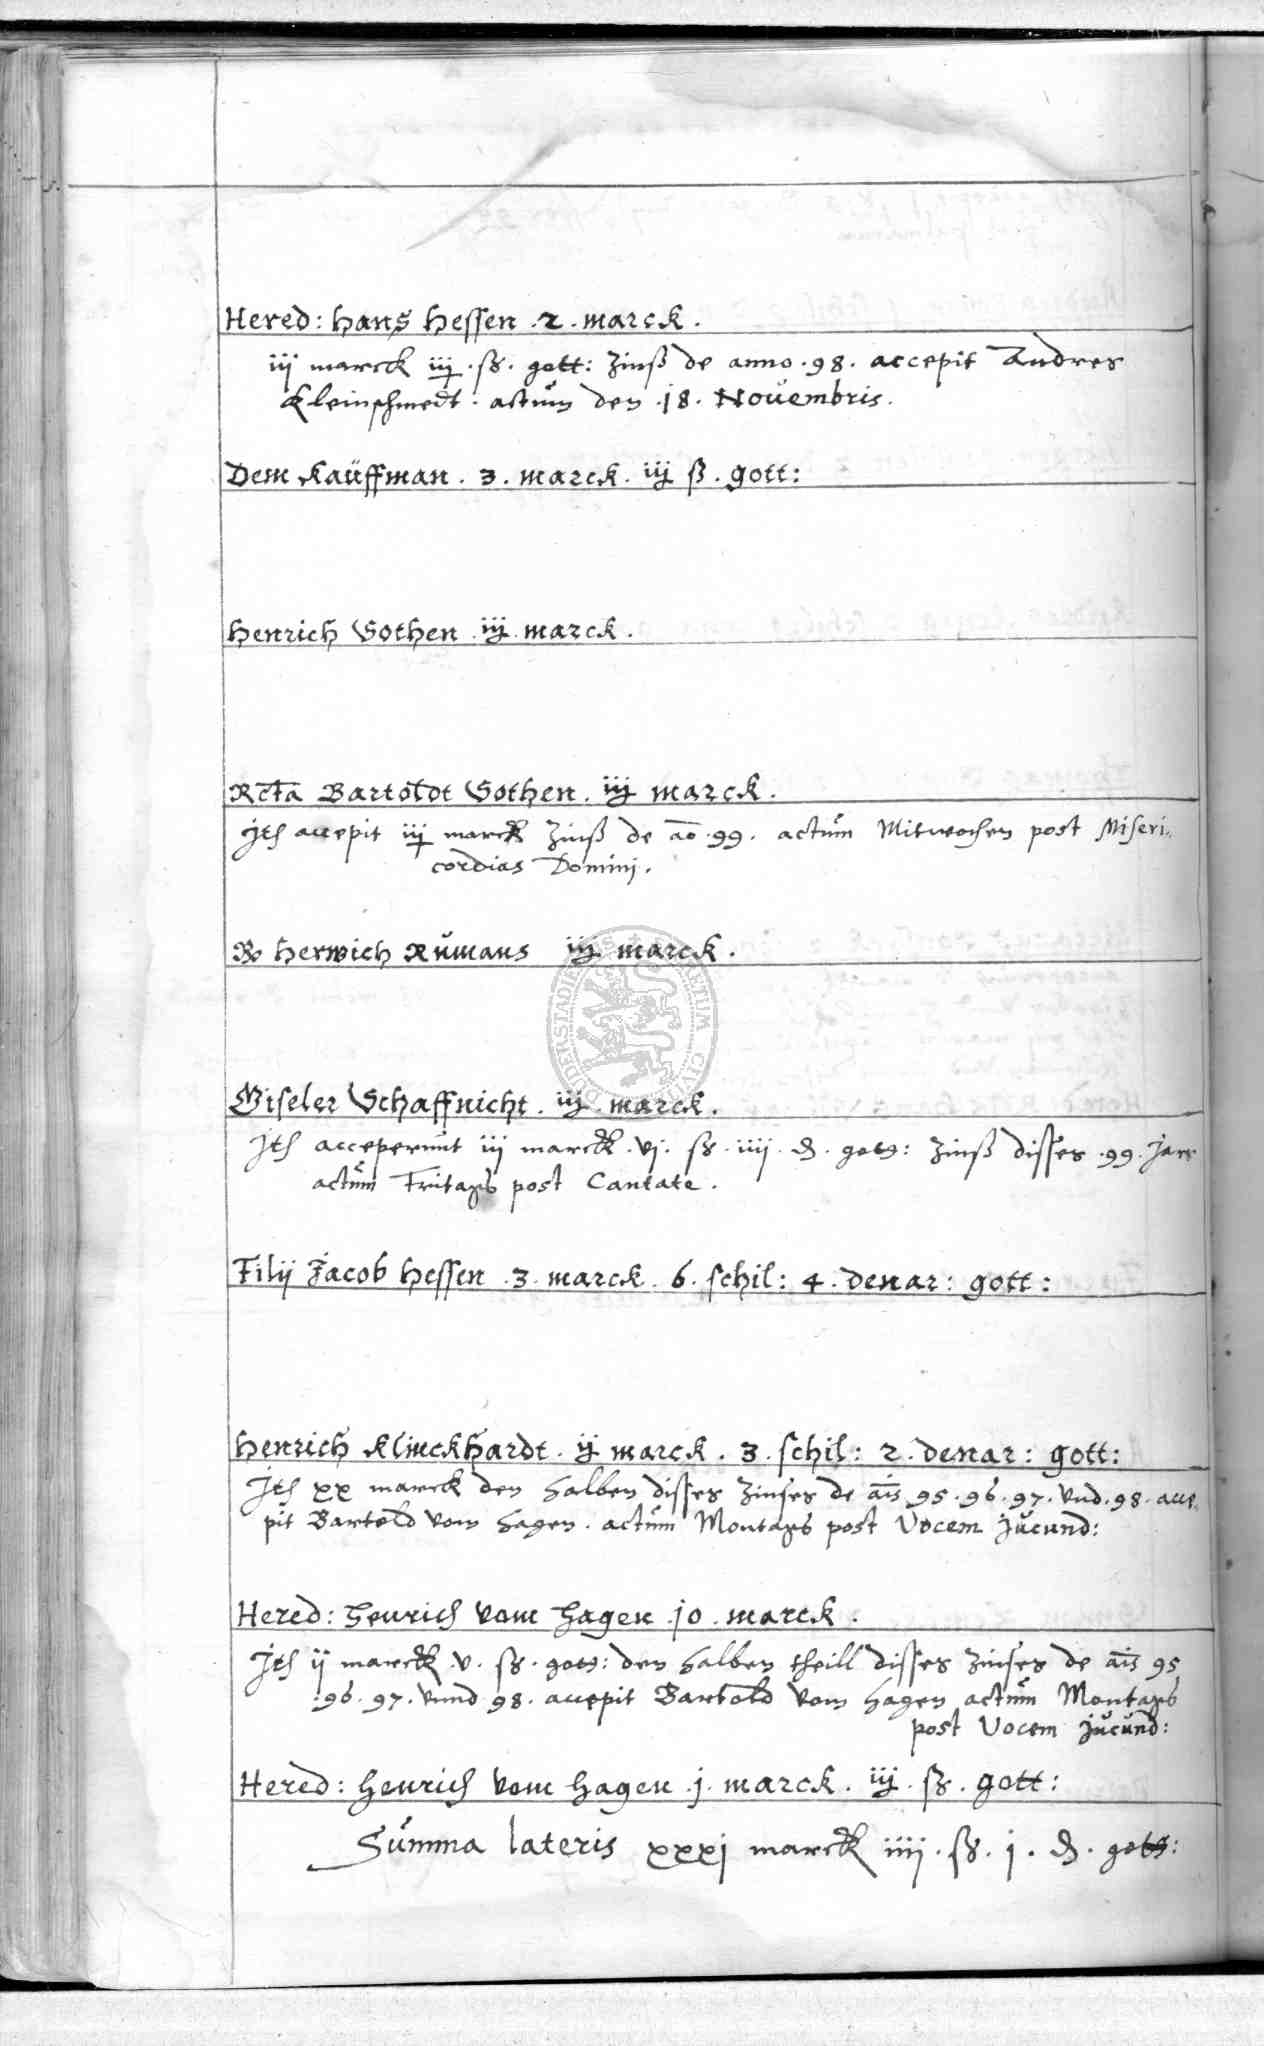 Hered: Hans Hessen . 2 . marck .
iij marck iij . ß . gott: Zinß de anno . 98 . accepit Andres
Kleinschmedt . actum den . 18 . Novembris .
Dem Kauffman . 3 . marck . iij ß . gott:
Henrich Sothen . iij . marck .
Bartoldt Sothen . iij marck .
Jth accepit iij marck Zinß de ao . 99 . actum Mitwochen post Miseri-
cordias Domini .
Herwich Rumans iij marck .
Giseler Schaffnicht . iij . marck .
Jth acceperunt iij marck . vj . ß . iiij . d . gott: Zinß disses . 99 . Jars
actum Fritags post Cantate .
Filij Jacob Hessen . 3 . marck . 6 . schil: 4 . denar: gott:
Henrich Klinckhardt . ij marck . 3 . schil: 2 . denar: gott:
Jth xx marck den halben disses Zinses de ais 95 . 96 . 97 . vnd . 98 . acce-
pit Bartold vom Hagen . actum Montags post Vocem Jucund:
Hered: Henrich vom Hagen . 10 . marck .
Jth ij marck . v . ß . gott: den halben theill disses Zinses de ais 95
. 96 . 97 . vnnd 98 . accepit Bartold vom Hagen actum Montags
post Vocem Jucund:
Hered: Henrich vom Hagen . j . marck . iij . ß . gott:
Summa lateris xxxj marck iiij . ß . j . d . gott: